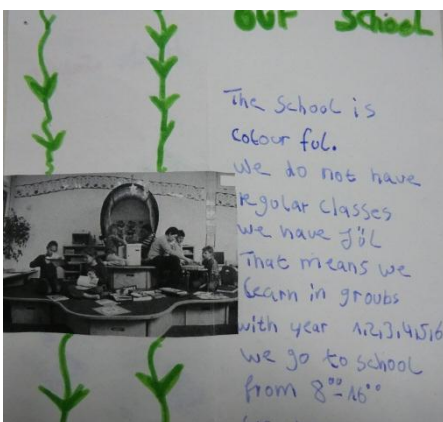 our School
The School is
colour ful.
We do not have
regular classes
we have JüL
That means we
learn in groups
with year 1,2,3,4,5,6
we go to school
from 8⁰⁰-16⁰⁰